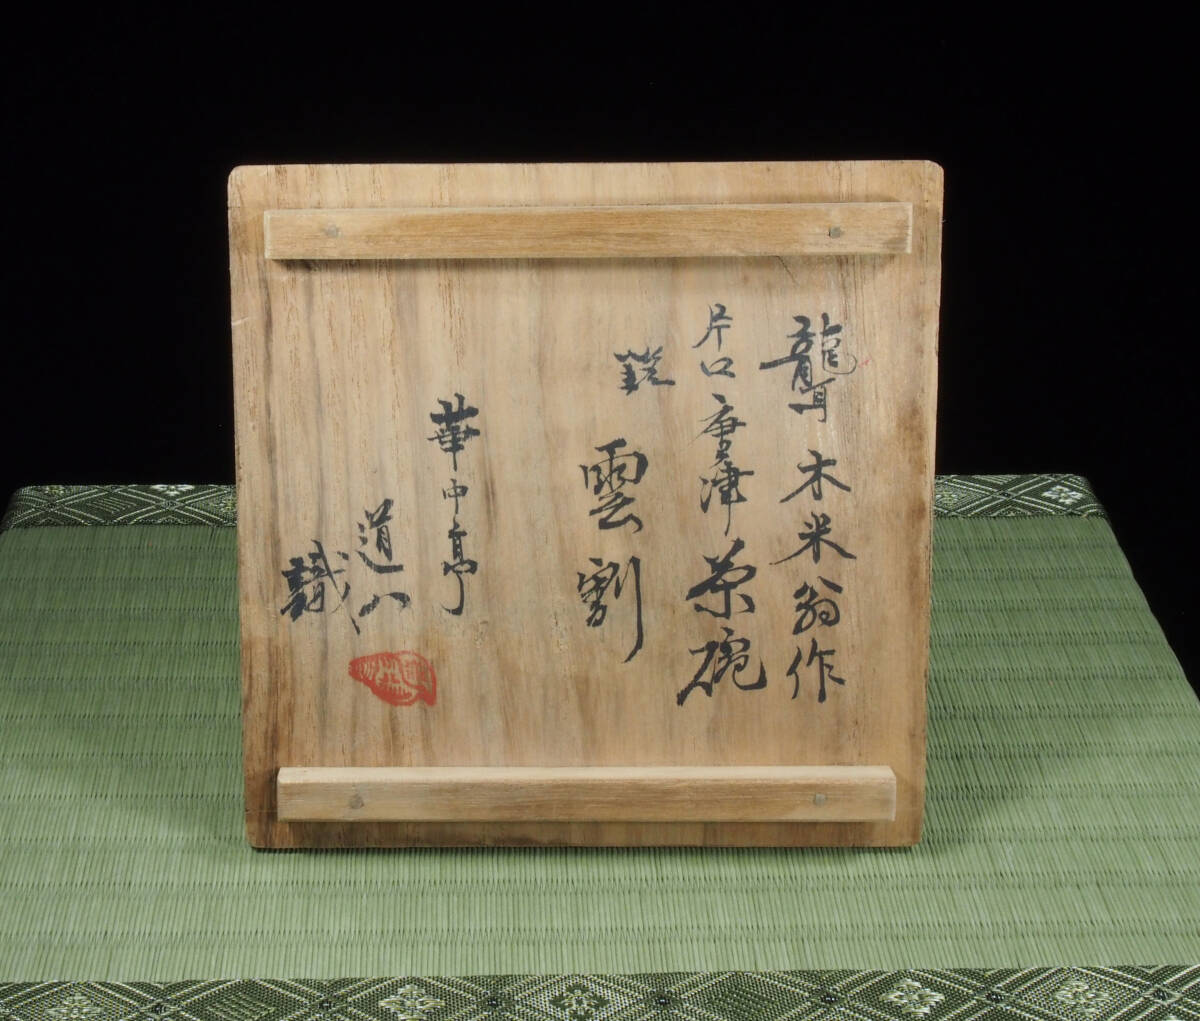 聾木米翁作
片口唐津茶碗
銘
雲割
華中亭
道八
識